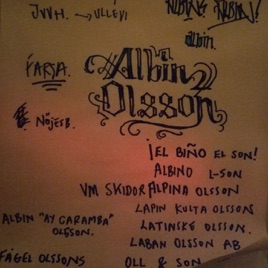 JVVH. → ULLEVI
ALBIN!
albin.
FARJA.
Albin
Olsson
NÖJESB.
¡EL BIÑO EL SON!
ALBINO L-SON
VM SKIDOR ALPINA OLSSON
LAPIN KULTA OLSSONS
ALBIN "AY CARAMBA"
OLSSON.
LATINSKE OLSSON.
LABAN OLSSON AB
FÅGEL OLSSONS
OLL & SON